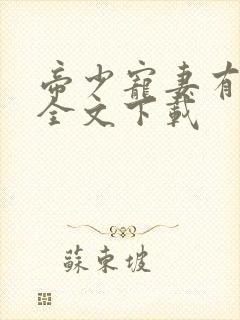 帝少寵妻有
全文下載
蘇東坡